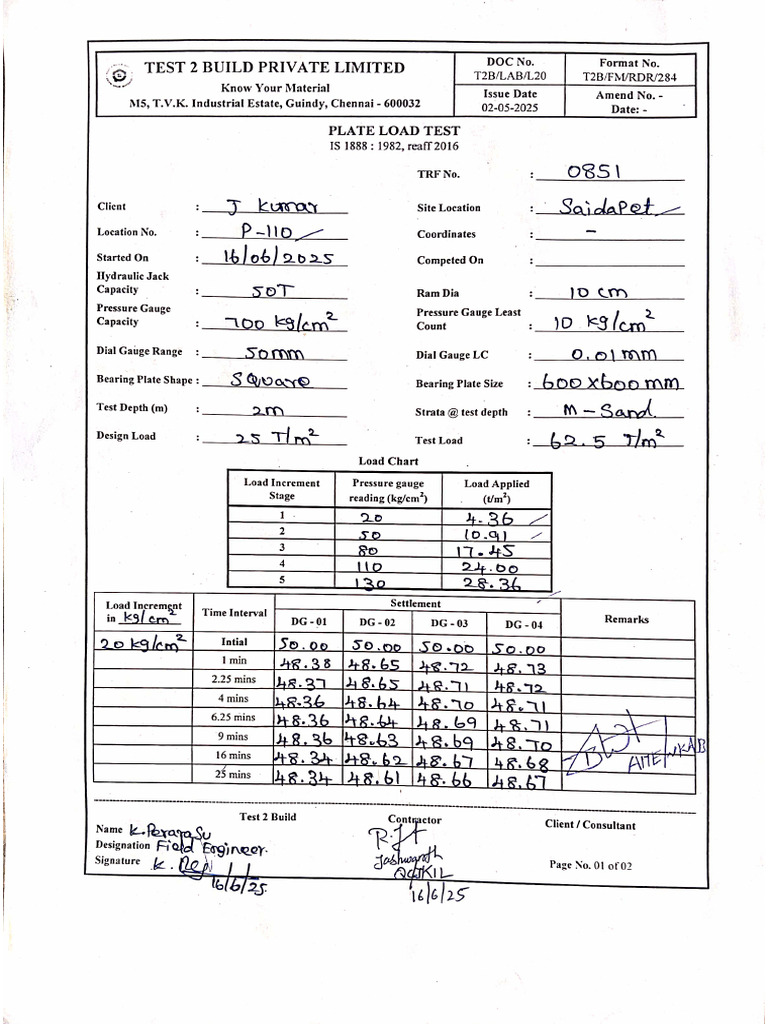 TEST 2 BUILD PRIVATE LIMITED
Know Your Material
M5, T.V.K. Industrial Estate, Guindy, Chennai - 600032
DOC No.
T2B/LAB/L20
Format No.
T2B/FM/RDR/284
Issue Date
02-05-2025
Amend No. -
Date: -
PLATE LOAD TEST
IS 1888 : 1982, reaff 2016
TRF No. : 0851
Client : J Kumar Site Location : Saidapet
Location No. : P-110 Coordinates : -
Started On : 16/06/2025 Competed On :
Hydraulic Jack
Capacity : 50T Ram Dia : 10 cm
Pressure Gauge
Capacity : 700 kg/cm² Pressure Gauge Least
Count : 10 kg/cm²
Dial Gauge Range : 50mm Dial Gauge LC : 0.01mm
Bearing Plate Shape : Square Bearing Plate Size : 600x600mm
Test Depth (m) : 2m Strata @ test depth : M-Sand
Design Load : 25 T/m² Test Load : 62.5 T/m²
Load Chart
Load Increment Stage Pressure gauge reading (kg/cm²) Load Applied (t/m²)
1 20 4.36
2 50 10.91
3 80 17.45
4 110 24.00
5 130 28.36
Load Increment in kg/cm² Time Interval Settlement Remarks
DG - 01 DG - 02 DG - 03 DG - 04
20 kg/cm² Intial 50.00 50.00 50.00 50.00
1 min 48.38 48.65 48.72 48.73
2.25 mins 48.37 48.65 48.71 48.72
4 mins 48.36 48.64 48.70 48.71
6.25 mins 48.36 48.64 48.69 48.71
9 mins 48.36 48.63 48.69 48.70
16 mins 48.34 48.62 48.67 48.68
25 mins 48.34 48.61 48.66 48.67
Test 2 Build Contractor Client / Consultant
Name
Designation Field Engineer
Signature
16/6/25
16/6/25
Page No. 01 of 02